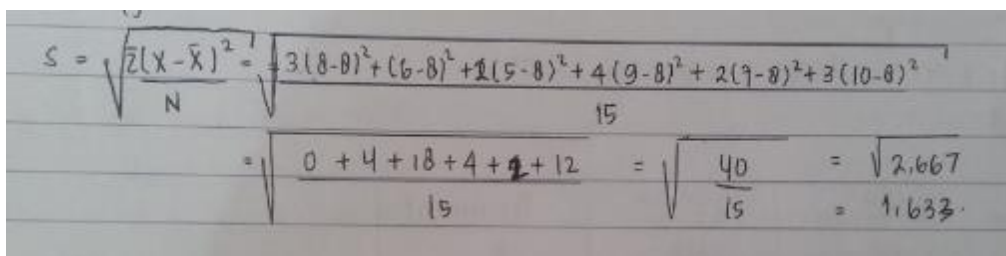 S = √(Σ(x-x̄)²/N) = √((3(8-8)²+(6-8)²+2(5-8)²+4(9-8)²+2(7-8)²+3(10-8)²)/15)
= √((0+4+18+4+2+12)/15) = √(40/15) = √2,667
= 1,633.